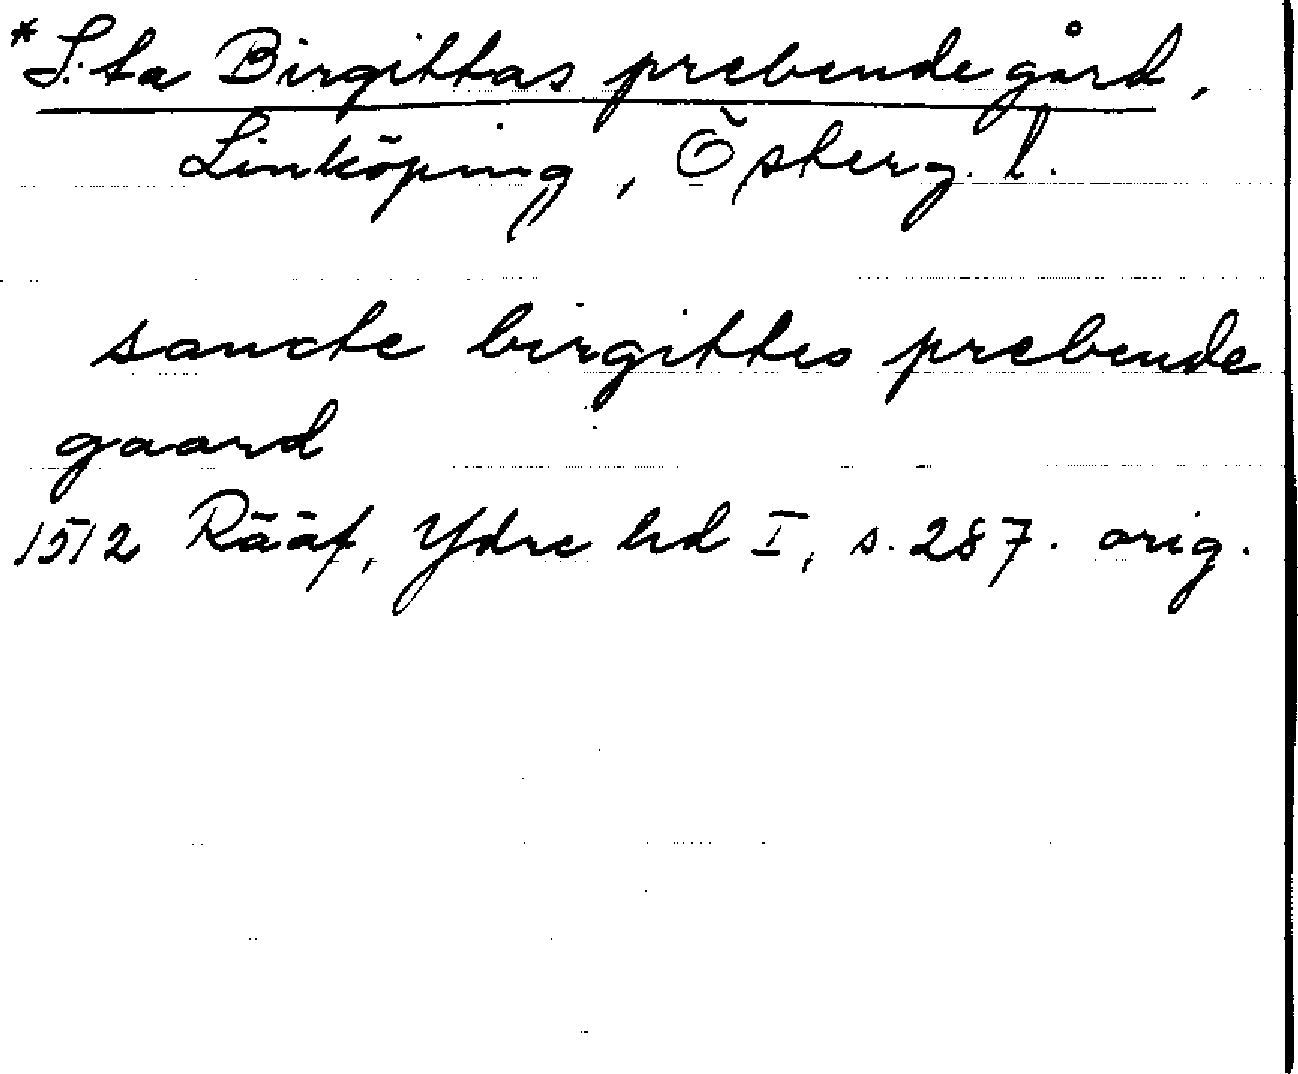 *S:ta Birgittas prebendegård,
Linköping, Österg. l.
sancte birgittes prebende
gaard
1512 Rääf, Ydre hd I, s. 287. orig.